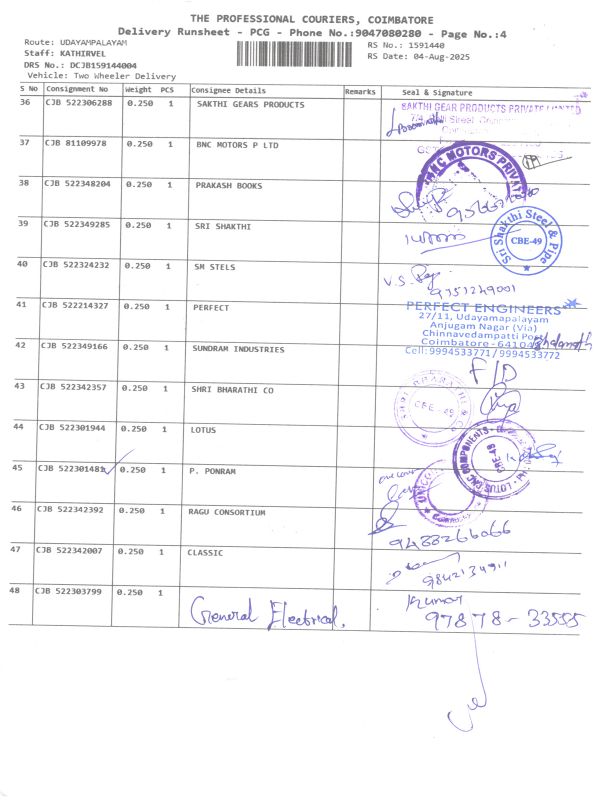 THE PROFESSIONAL COURIERS, COIMBATORE
Delivery Runsheet - PCG - Phone No.:9047080280 - Page No.:4
Route: UDAYAMPALAYAM RS No.: 1591440
Staff: KATHIRVEL RS Date: 04-Aug-2025
DRS No.: DCJB159144004
Vehicle: Two Wheeler Delivery
S No Consignment No Weight PCS Consignee Details Remarks Seal & Signature
36 CJB 522306288 0.250 1 SAKTHI GEARS PRODUCTS
SAKTHI GEAR PRODUCTS PRIVATE LIMITED
37 CJB 81109978 0.250 1 BNC MOTORS P LTD
BNC MOTORS PRIVATE
38 CJB 522348204 0.250 1 PRAKASH BOOKS
39 CJB 522349285 0.250 1 SRI SHAKTHI
Sri Shakthi Steel & Pipe
CBE-49
40 CJB 522324232 0.250 1 SM STELS
V.S.
9751249001
41 CJB 522214327 0.250 1 PERFECT
PERFECT ENGINEERS
27/11, Udayamapalayam
Anjugam Nagar (Via)
Chinnavedampatti Post
Coimbatore - 641049
Cell:9994533771/9994533772
42 CJB 522349166 0.250 1 SUNDRAM INDUSTRIES
F/D
43 CJB 522342357 0.250 1 SHRI BHARATHI CO
CBE-49
44 CJB 522301944 0.250 1 LOTUS
LOTUS CNC COMPONENTS
CBE-49
45 CJB 522301481 0.250 1 P. PONRAM
46 CJB 522342392 0.250 1 RAGU CONSORTIUM
9488266066
47 CJB 522342007 0.250 1 CLASSIC
9842134911
48 CJB 522303799 0.250 1 General Electrical.
Kumar
97878-33555